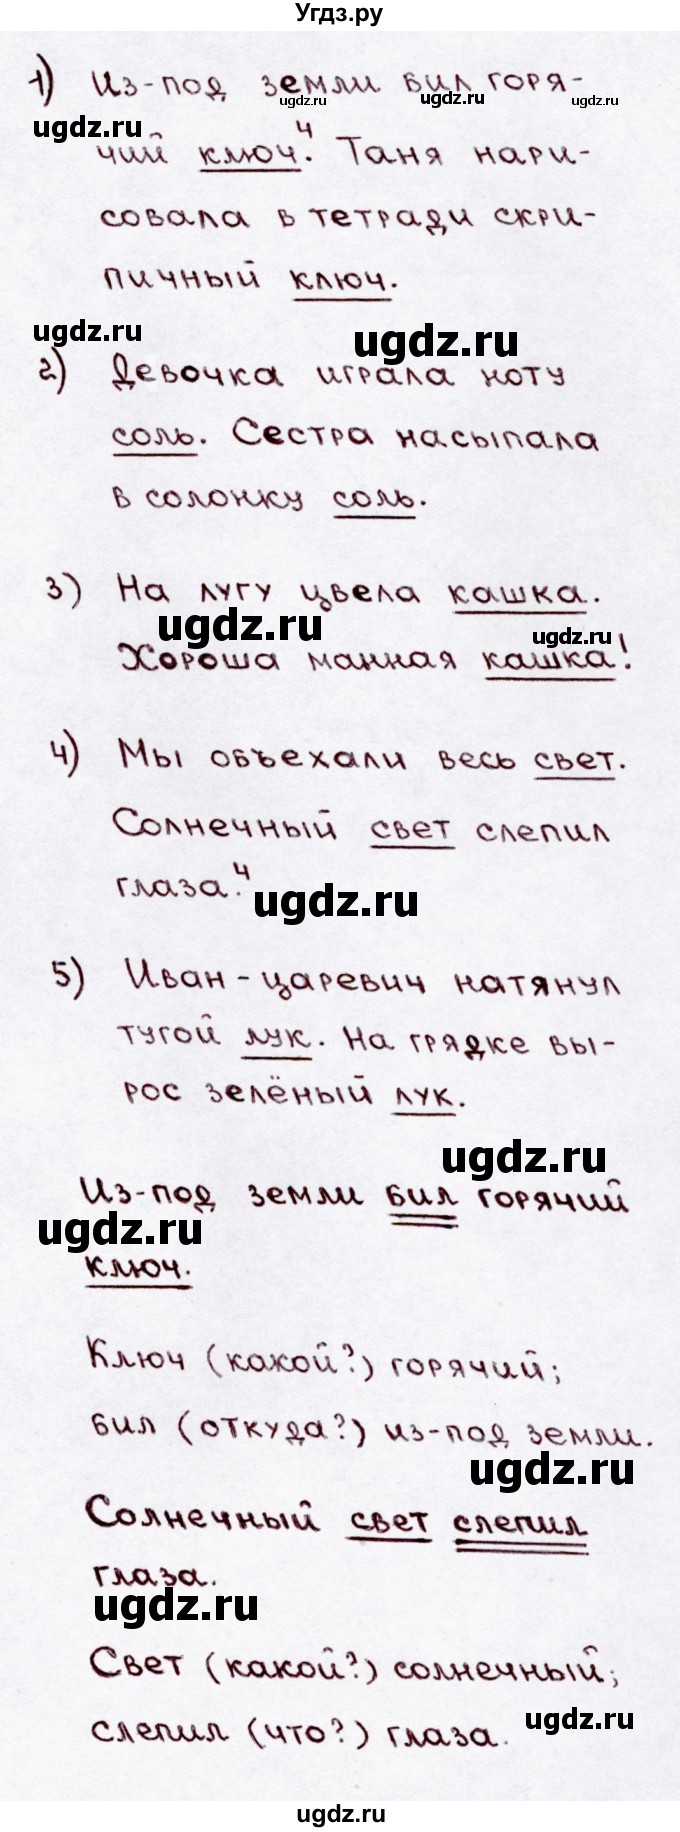 Угдз.ру
1) Из-под земли бил горя-
ugdz.ru ugdz.ru ugdz.ru
ugdz.ru
чий ключ.⁴ Таня нари-
совала в тетради скри-
пичный ключ.
ugdz.ru
ugdz.ru
2) Девочка играла ноту
соль. Сестра насыпала
в солонку соль.
3) На лугу цвела кашка.
ugdz.ru
ugdz.ru
Хороша манная кашка!
4) Мы объехали весь свет.
Солнечный свет слепил
глаза.⁴
ugdz.ru
5) Иван-царевич натянул
тугой лук. На грядке вы-
рос зелёный лук.
ugdz.ru
Из-под земли бил горячий
ugdz.ru
ключ.
Ключ (какой?) горячий;
бил (откуда?) из-под земли.
ugdz.ru
Солнечный свет слепил
глаза.
ugdz.ru
Свет (какой?) солнечный;
слепил (что?) глаза.
ugdz.ru
ugdz.ru